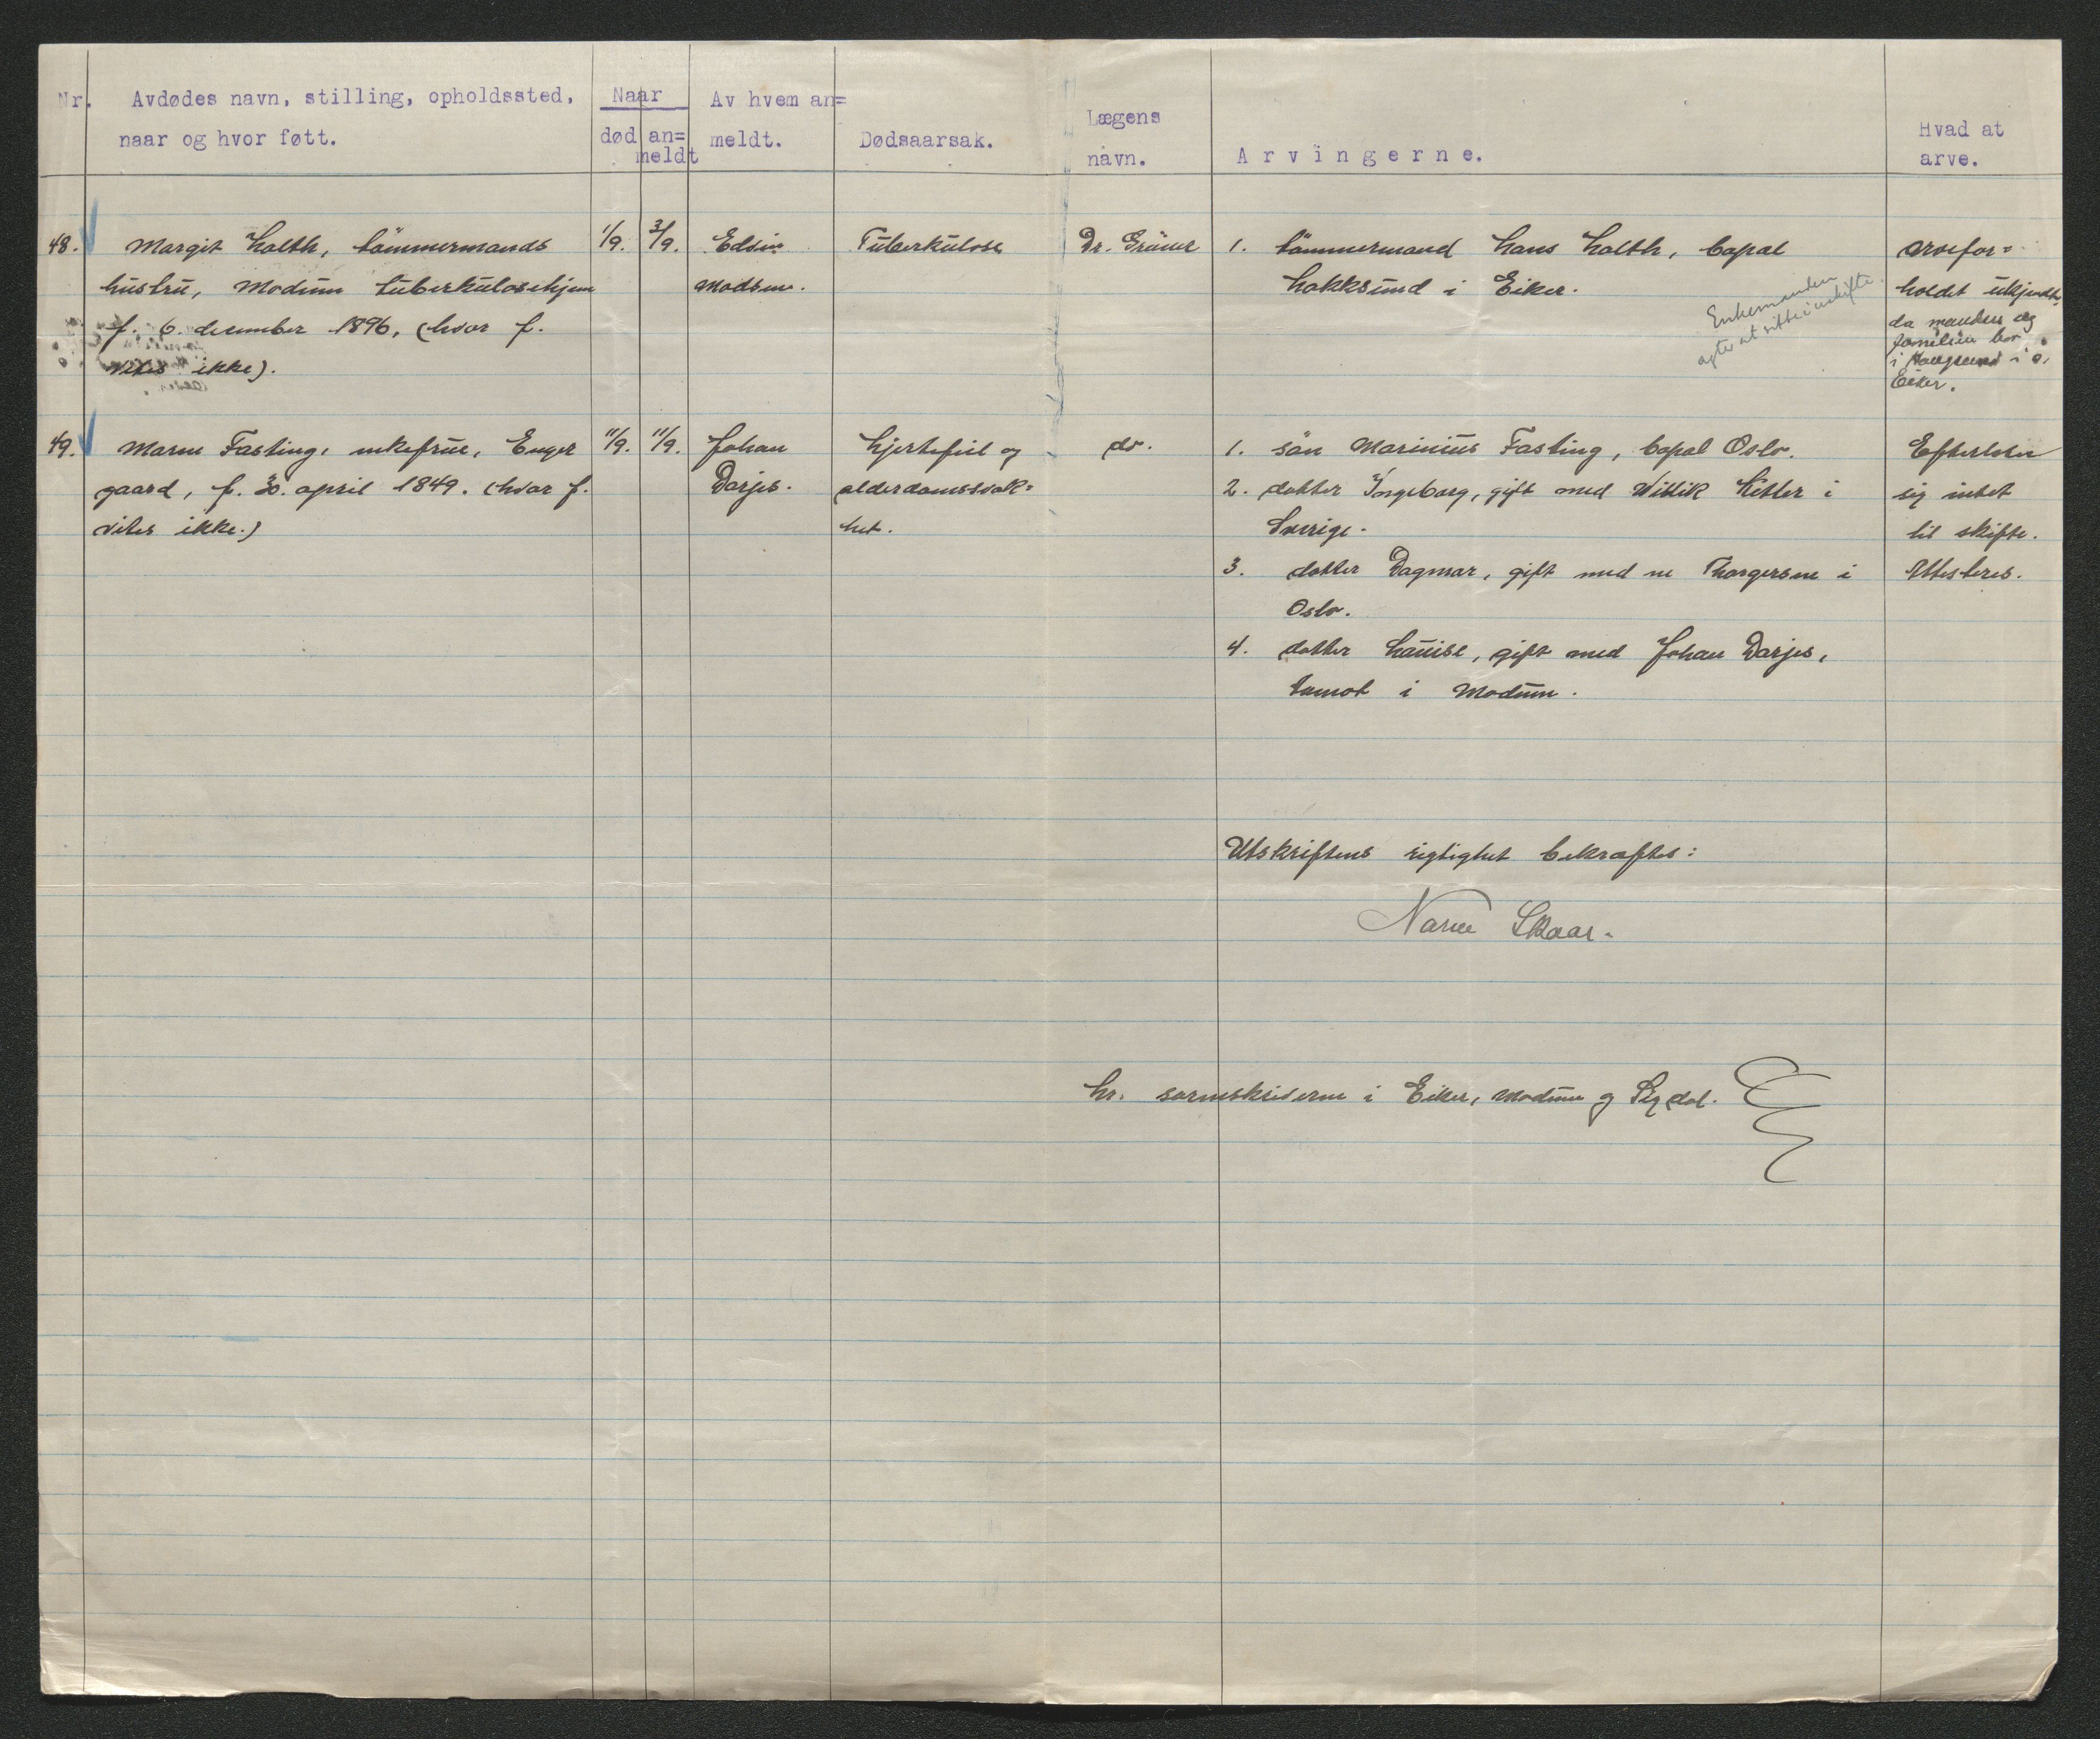 Nr. Avdødes navn, stilling, opholdssted, naar og hvor føtt.
Naar
død an=meldt
Av hvem an=meldt.
Dødsaarsak.
Lægens navn.
Arvingerne.
Hvad at arve.
48. Margit Holth, tömmermands
hustru, Modum tuberkulosehjem
f. 6. desember 1896, (hvor f.
vites ikke).
1/9. 3/9.
Edvin
Madsen.
Tuberkulose
Dr. Grüner
1. tömmermand Hans Holth, bopæl
Hokksund i Eiker.
Enkemanden
agter at sitte i uskifte.
Arvefor=
holdet ukjendt,
da manden og
familien bor
i Haugsund i Ø.
Eiker.
49. Maren Fasting, enkefrue, Enger
gaard, f. 30. april 1849. (hvor f.
vites ikke.)
11/9. 11/9.
Johan
Darjes.
Hjertefeil og
alderdomssvak=
het.
do.
1. sön Marinius Fasting, bopæl Oslo.
2. dotter Ingeborg, gift med Ketler i
Sverige.
3. dotter Dagmar, gift med en Thorgersen i
Oslo.
4. dotter Louise, gift med Johan Darjes,
Aamot i Modum.
Efterlater
sig intet
til skifte.
Attesteres.
Utskriftens rigtighet bekræftes:
Narve Skaar.
Hr. sorenskriveren i Eiker, Modum og Sigdal.